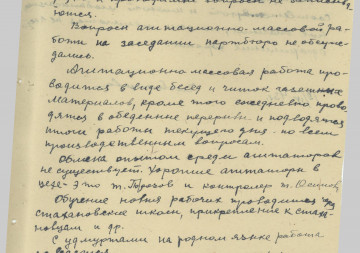 вопросы не
ются.
Вопросы агитационно-массовой ра-
боты на заседании партбюро не обсуж-
дались.
Агитационно массовая работа про-
водится в виде бесед и читок газетных
материалов, кроме того ежедневно прово-
дятся в обеденные перерывы и подводятся
итоги работы текущего дня - по всем
производственным вопросам.
Обмена опытом среди агитаторов
не существует. Хорошие агитаторы в
цехе - это т. и контролер т.
Обучение новых рабочих проводится через
стахановские школы, прикрепление к стаха-
новцам и др.
С удмуртами на родном языке работа